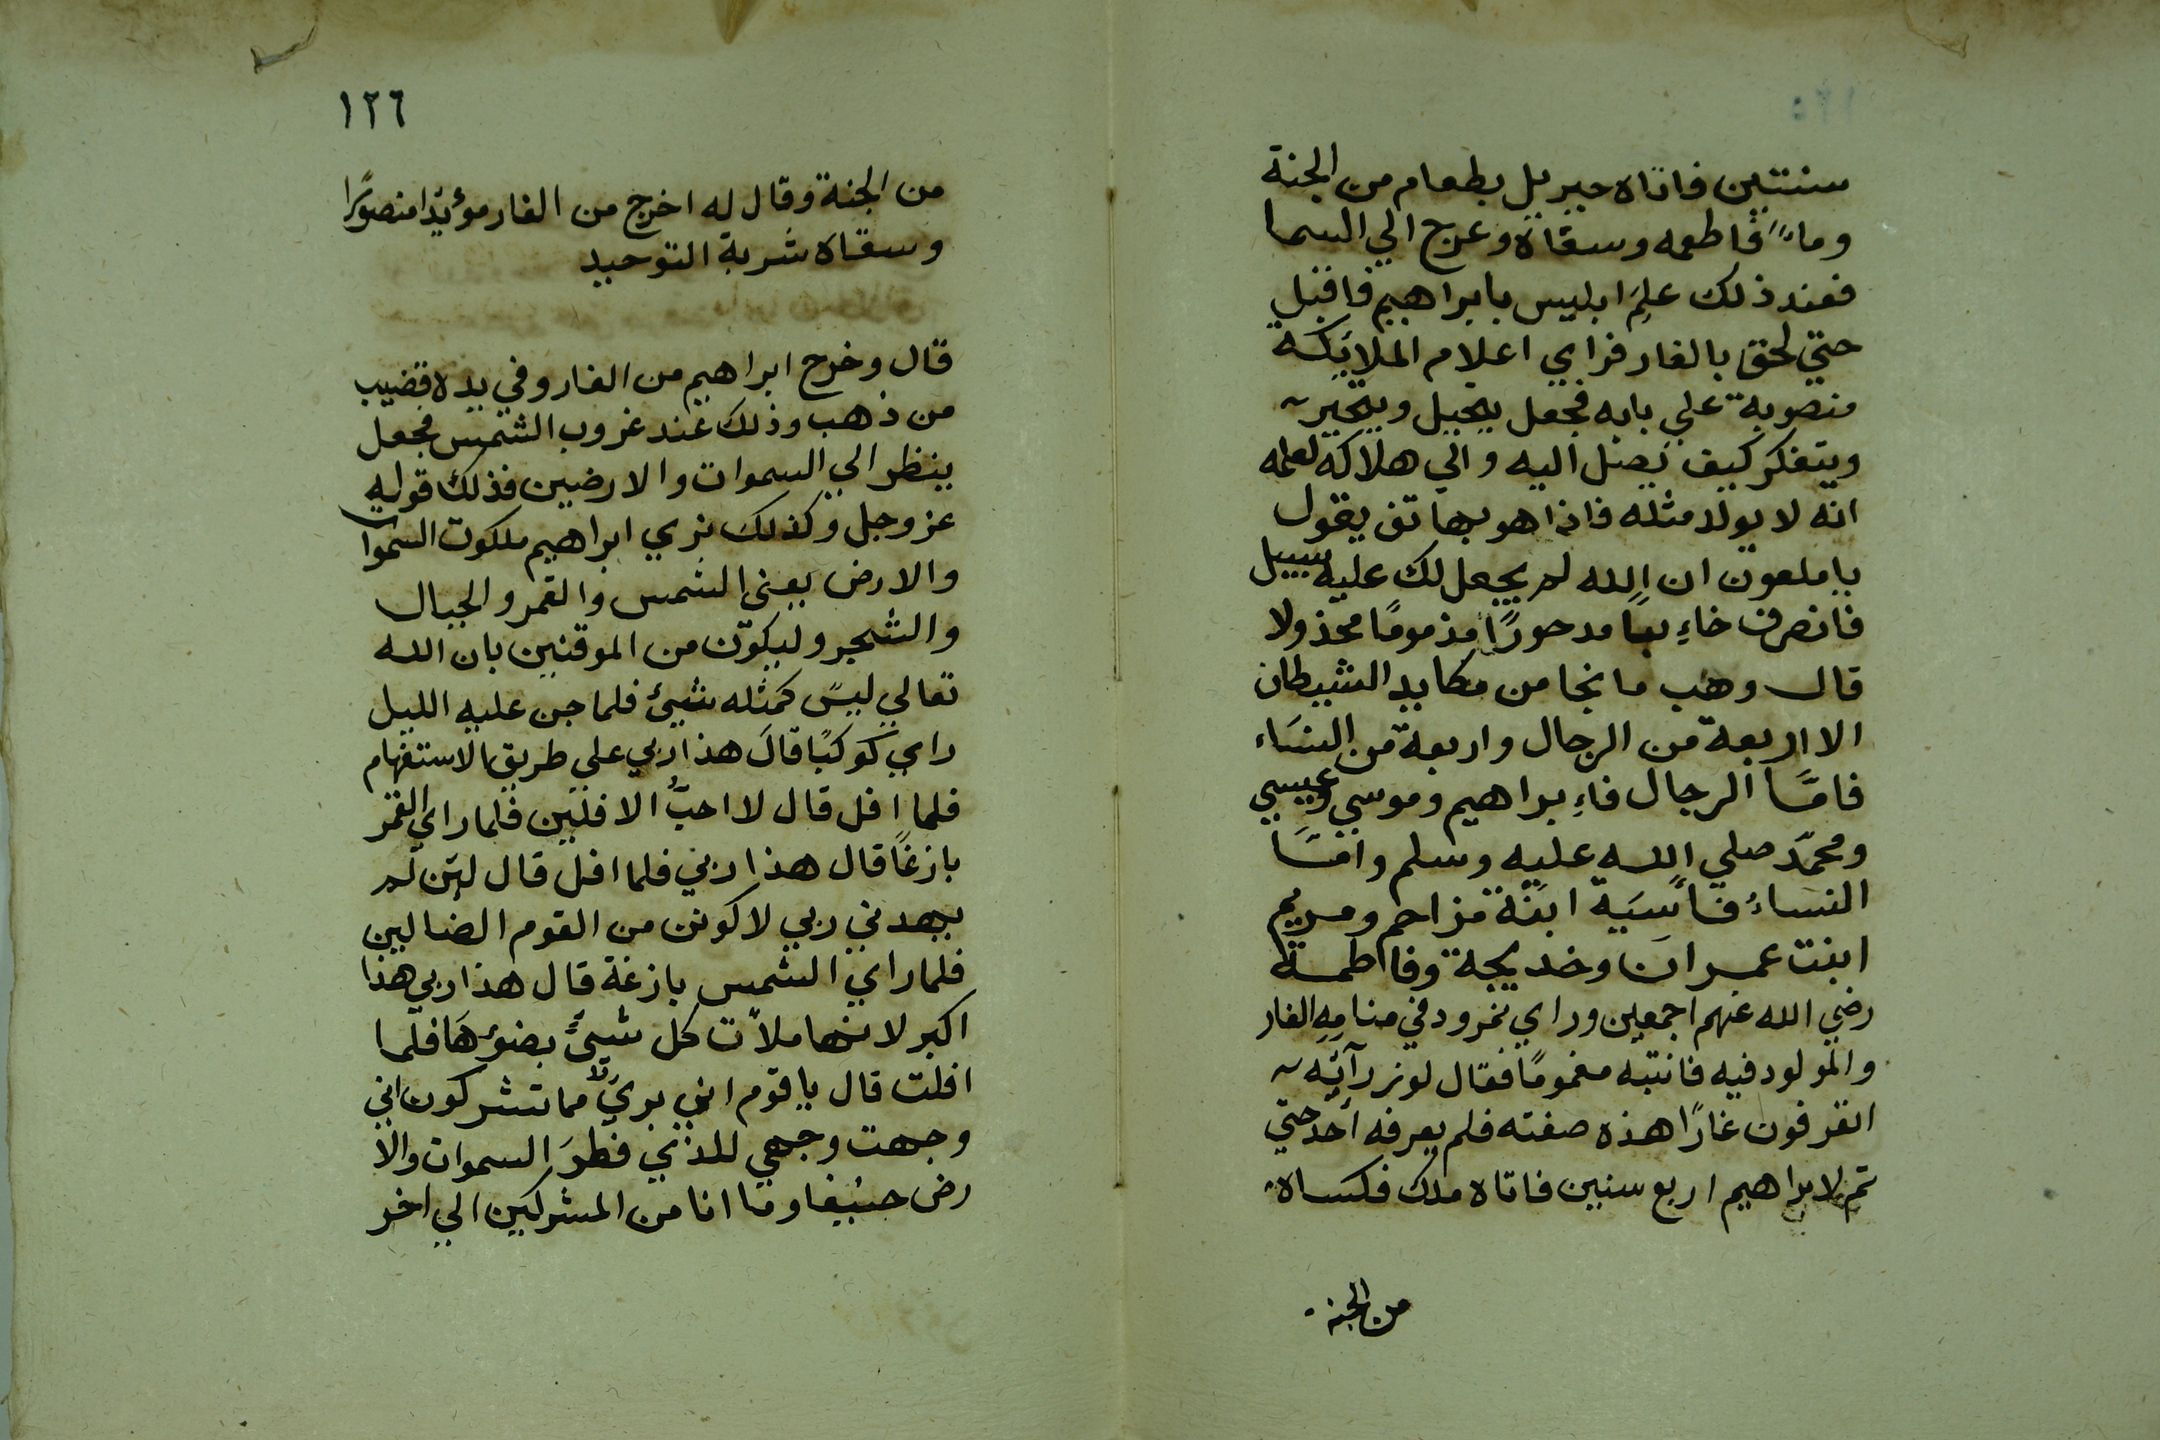 سنتين فاتاه جبريل بطعام من الجنة
وماءً فاطعمه وسقاه وعرج الي السما
فعند ذلك علِمَ ابليس بابراهيم فاقبل
حتي لحق بالغار فراي اعلام الملايكة
منصوبة علي بابه فجعل يحيل ويتحير
ويتفكر كيف يصل اليه والي هلاكه لعلمه
انه لا يولد مثله فاذا هو بهاتف يقول
يا ملعون ان الله لم يجعل لك عليه سبيل
فانصرف خاءِبًا مدحورًا مذمومًا مخذولا
قال وهب ما نجا من مكايد الشيطان
الا اربعة من الرجال واربعة من النسَاء
فامَّا الرجال فاءِبراهيم وموسي وعيسي
ومحمّد صلي الله عليه وسلم وامَّا
النساءُ فآسَية ابنة مزاحم ومريم
ابنت عمران وخديجة وفاطمة
رضي الله عنهم اجمعين وراي نمرود في منامِهِ الغار
والمولود فيه فانتبه مغمومًا فقال لوزرآئِه
اتعرفون غارًا هذه صفته فلم يعرفه احَد حتي
تم لابراهيم اربع سنين فاتاه ملك فكسَاه
من الجنة
١٢٦
من الجنة وقال له اخرج من الغار مؤيّدا منصورًا
وسقاه شربة التوحيد
قال وخرج ابراهيم من الغار وفي يده قضيب
من ذهب وذلك عند غروب الشمس فجعل
ينظر الي السموات والارضين فذلك قوله
عز وجل وكذلك نري ابراهيم ملكوت السموات
والارض يعني الشمس والقمر والجبال
والشجر وليكوّن من الموقنين بان الله
تعالي ليسَ كمثله شيئ فلما جن عليه الليل
راي كوكبًا قالَ هذا ربي علي طريق الاستفهام
فلما افل قال لا احبُّ الافلين فلما راي القمر
بازغًا قال هذا ربي فلما افل قال لئِن لم
يهدني ربي لاكونن من القوم الضالين
فلما راي الشمس بازغة قال هذا ربي هذا
اكبر لانها ملأت كل شيئ بضوءِهَا فلما
افلت قال يا قوم اني بريءٌ مما تشركون اني
وجهت وجهي للذي فطرَ السموات والا
رض حنيفا وما انا من المشركين الي اخر